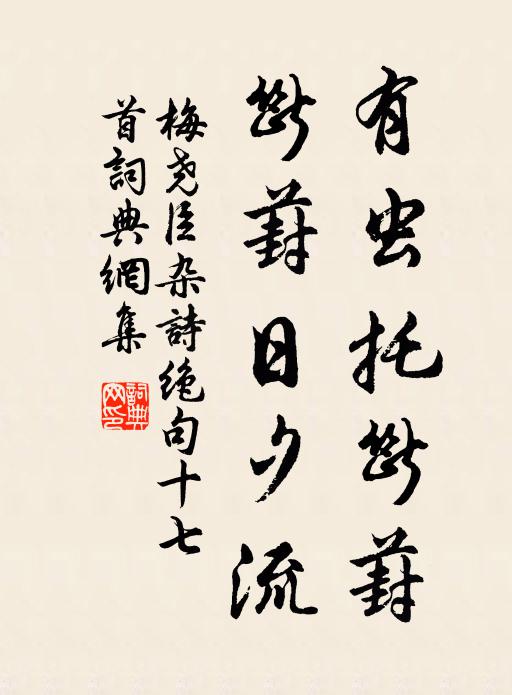 有虫托断葑
断葑日夕流
梅尧臣杂詩绝句十七
首詞典網集
詞典
网印